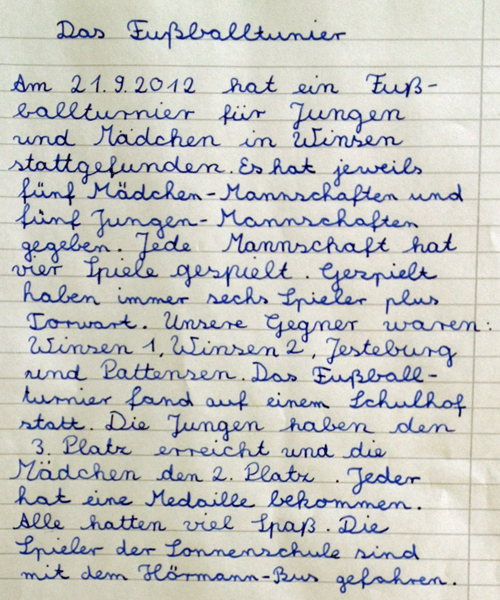 Das Fußballtunier
Am 21.9.2012 hat ein Fuß-
ballturnier für Jungen
und Mädchen in Winsen
stattgefunden. Es hat jeweils
fünf Mädchen-Mannschaften und
fünf Jungen-Mannschaften
gegeben. Jede Mannschaft hat
vier Spiele gespielt. Gespielt
haben immer sechs Spieler plus
Torwart. Unsere Gegner waren:
Winsen 1, Winsen 2, Jesteburg
und Pattensen. Das Fußball-
turnier fand auf einem Schulhof
statt. Die Jungen haben den
3. Platz erreicht und die
Mädchen den 2. Platz. Jeder
hat eine Medaille bekommen.
Alle hatten viel Spaß. Die
Spieler der Sonnenschule sind
mit dem Hörmann-Bus gefahren.